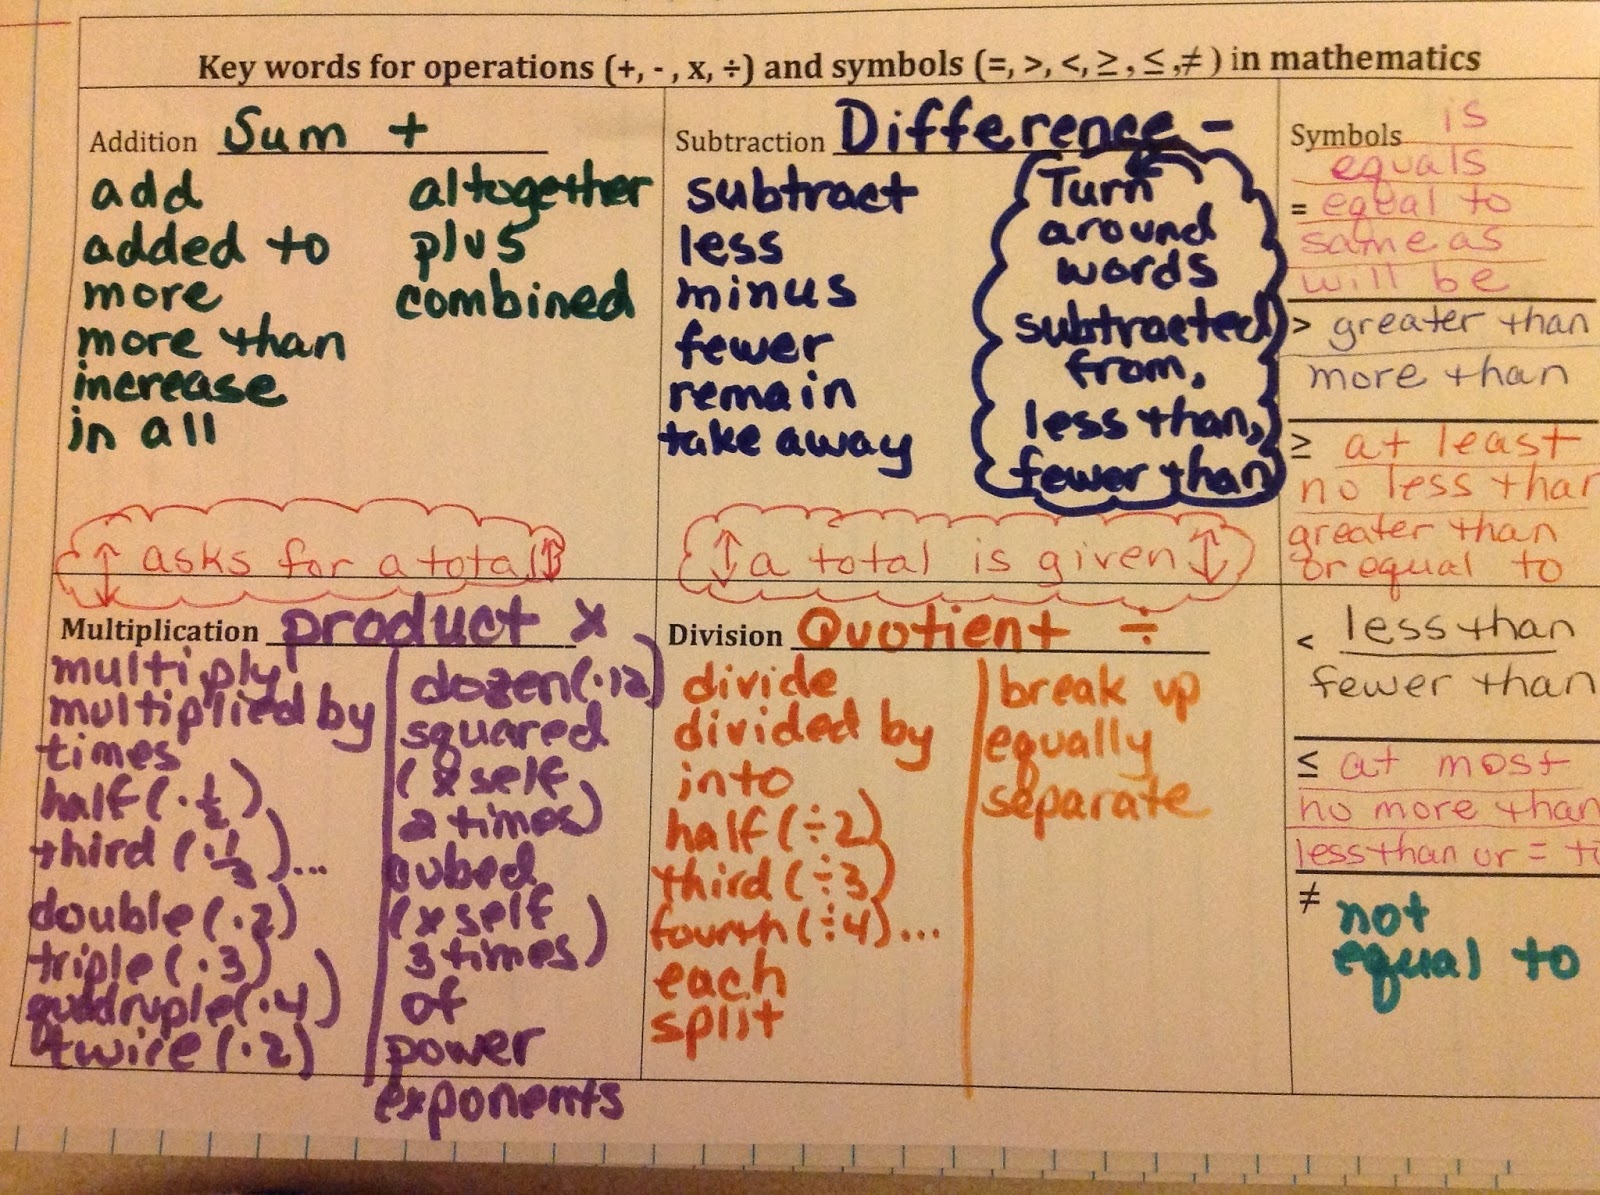 Key words for operations (+, - , x, ÷) and symbols (=, >, <, ≥ , ≤ ,≠ ) in mathematics
Addition Sum +
add
added to
more
more than
increase
in all
altogether
plus
combined
asks for a total
Subtraction Difference -
subtract
less
minus
fewer
remain
take away
Turn
around
words
subtracted
from,
less than,
fewer than
a total is given
Multiplication product x
multiply
multiplied by
times
half (· 1/2)
third (· 1/3)...
double (· 2)
triple (· 3)
quadruple (· 4)
twice (· 2)
dozen (· 12)
squared
(x self
2 times)
cubed
(x self
3 times)
of
power
exponents
Division Quotient ÷
divide
divided by
into
half (÷2)
third (÷3)
fourth (÷4)...
each
split
break up
equally
separate
Symbols is
equals
= equal to
same as
will be
> greater than
more than
≥ at least
no less than
greater than
or equal to
< less than
fewer than
≤ at most
no more than
less than or = to
≠ not
equal to